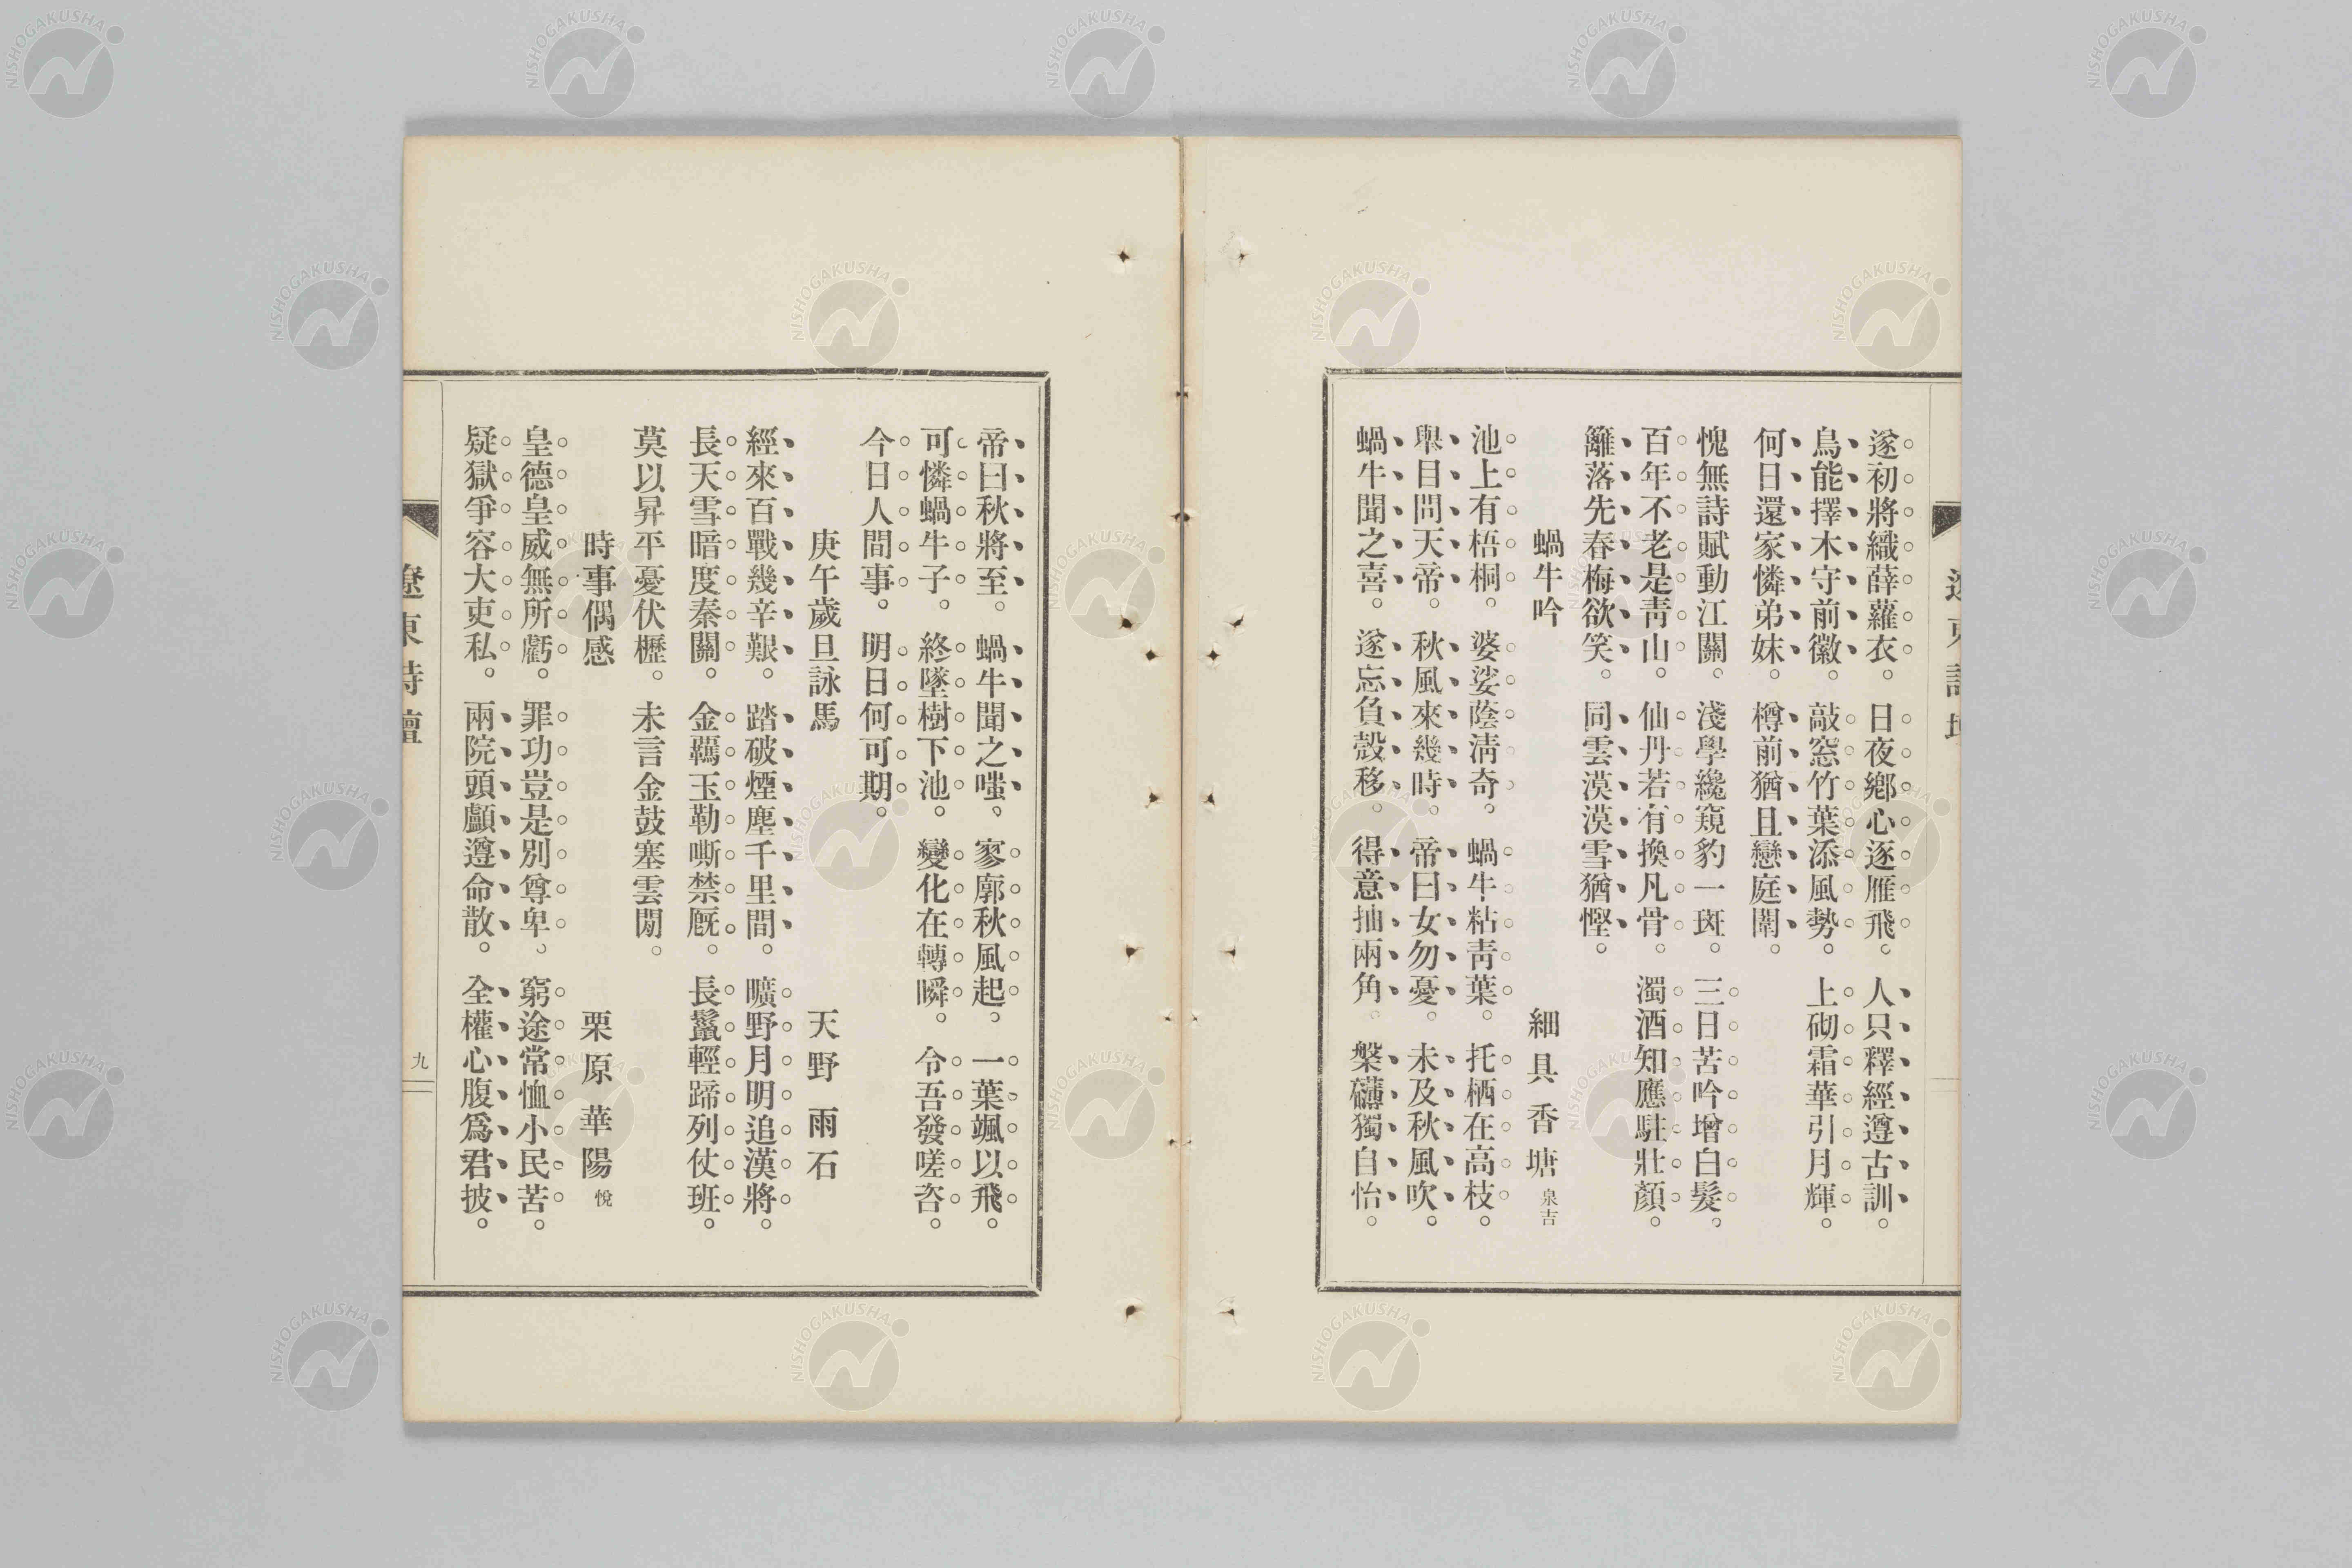 遂初將織薜蘿衣。日夜鄕心逐雁飛。人只釋經遵古訓。
鳥能擇木守前徽。敲窓竹葉添風勢。上砌霜華引月輝。
何日還家憐弟妹。樽前猶且戀庭闈。
愧無詩賦動江關。淺學纔窺豹一斑。三日苦吟增白髮。
百年不老是靑山。仙丹若有換凡骨。濁酒知應駐壯顏。
籬落先春梅欲笑。同雲漠漠雪猶慳。
蝸牛吟 細具香塘 泉吉
池上有梧桐。婆娑蔭淸奇。蝸牛粘靑葉。托栖在高枝。
舉目問天帝。秋風來幾時。帝曰女勿憂。未及秋風吹。
蝸牛聞之喜。遂忘負殼移。得意抽兩角。槃礴獨自怡。
帝曰秋將至。蝸牛聞之嗤。寥廓秋風起。一葉颯以飛。
可憐蝸牛子。終墜樹下池。變化在轉瞬。令吾發嗟咨。
今日人間事。明日何可期。
庚午歲旦詠馬 天野雨石
經來百戰幾辛艱。踏破煙塵千里間。曠野月明追漢將。
長天雪暗度秦關。金覊玉勒嘶禁厩。長鬣輕蹄列仗班。
莫以昇平憂伏櫪。未言金鼓塞雲閒。
時事偶感 栗原華陽 悅
皇德皇威無所虧。罪功豈是別尊卑。窮途常恤小民苦。
疑獄爭容大吏私。兩院頭顱遵命散。全權心腹爲君披。
遼東詩壇
九
NISHOGAKUSHA